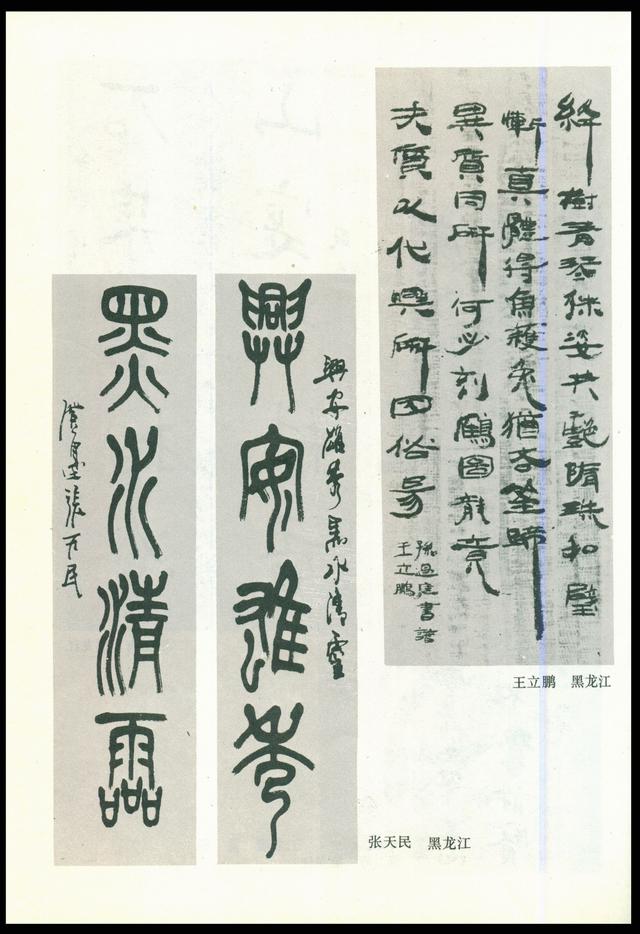 絳樹青琴殊姿共艷隋珠和璧
慚真體得魚獲兔猶吝筌蹄
異質同妍何必刻鶴圖龍竟
夫質以代興妍因俗易
孫過庭書譜
王立鵬
王立鹏 黑龙江
興安雄秀黑水清靈
興安雄秀
黑水清靈
張天民
张天民 黑龙江